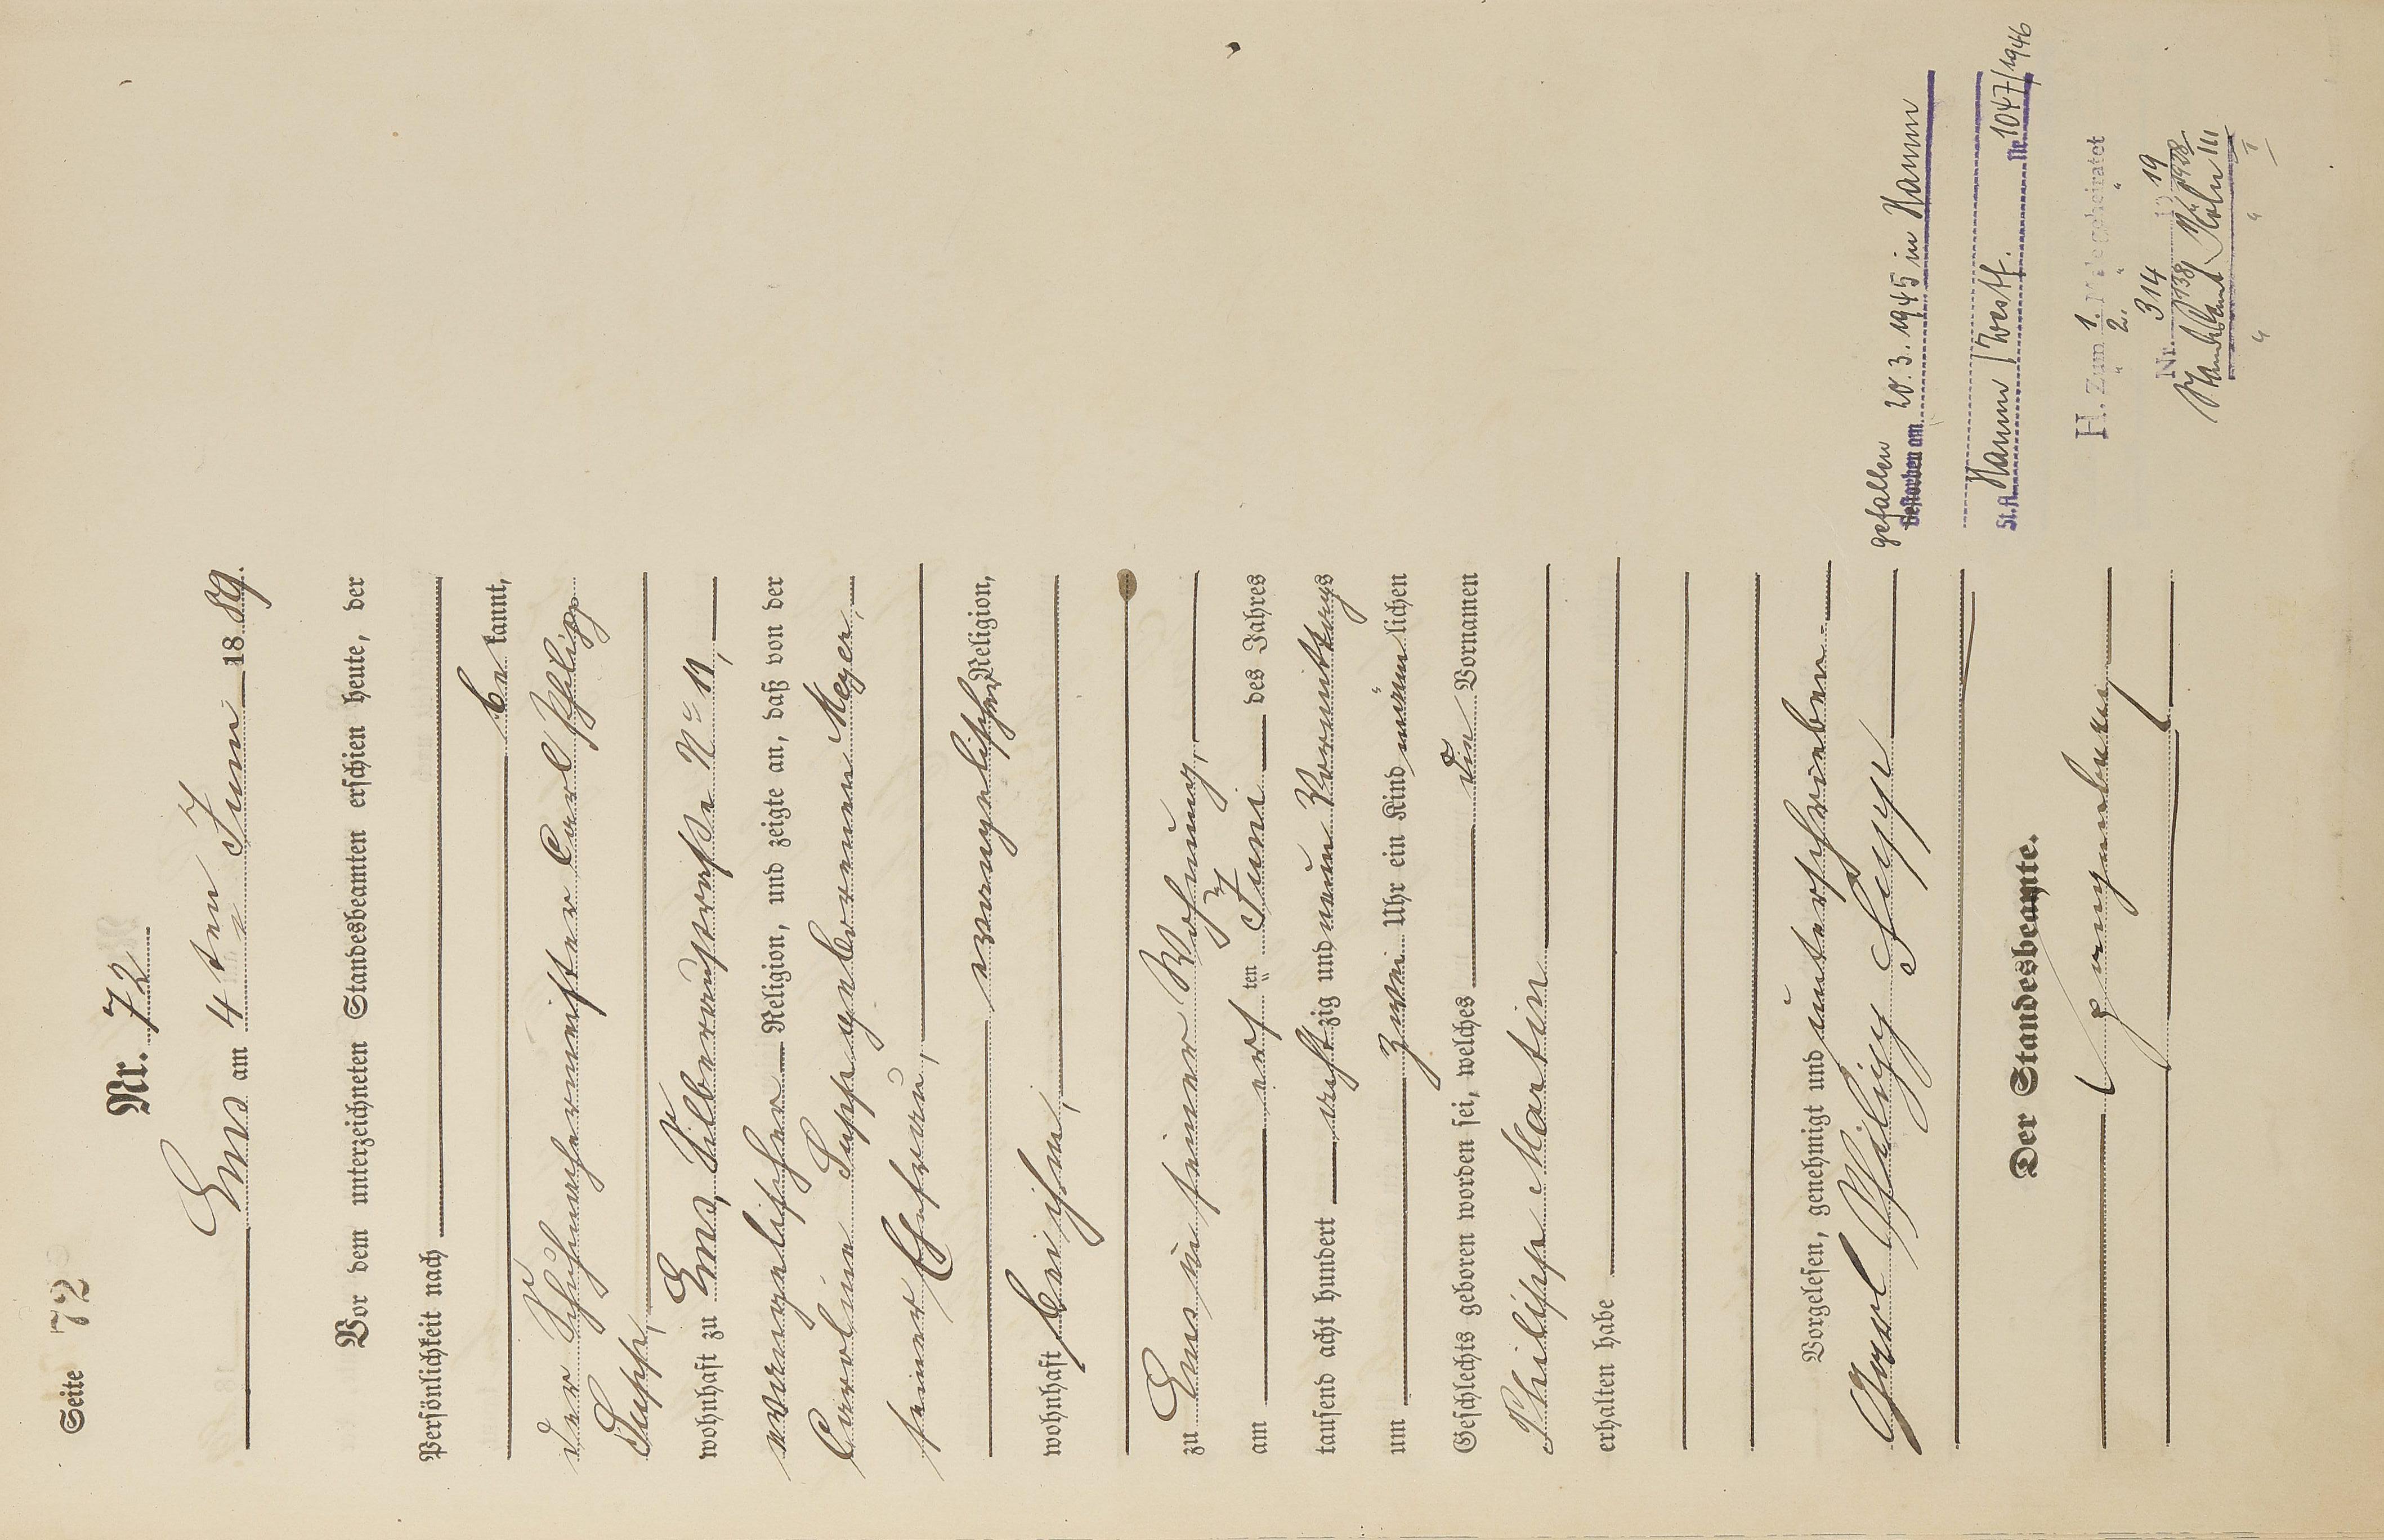 Seite 72
Nr. 72
Ems am 4ten Juni 1889.
Vor dem unterzeichneten Standesbeamten erschien heute, der
Persönlichkeit nach
bekannt,
der Schuhmachermeister Carl Philipp
Supp,
wohnhaft zu Ems, Silberaustraße No 11,
evangelischer Religion, und zeigte an, daß von der
Caroline Supp geborenen Meyer,
seiner Ehefrau,
evangelischer Religion,
wohnhaft bei ihm,
zu Ems in seiner Wohnung,
am ersten Juni des Jahres
tausend acht hundert achtzig und neun Vormittags
um zwei Uhr ein Kind männlichen
Geschlechts geboren worden sei, welches die Vornamen
Philipp Martin
erhalten habe
Vorgelesen, genehmigt und unterschrieben
Carl Philipp Supp
Der Standesbeamte.
gefallen
Gestorben am 20.3.1945 in Hamm
St.A. Hamm / Westf. Nr. 1047/1946
H. Zum 1. Mal geheiratet
" 2. " "
Nr. 314 1919
138 1928
Standesamt Köln III
" " I